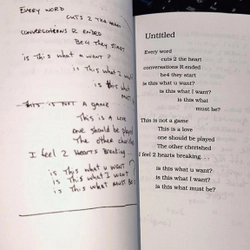 EVERY WORD
CUTS 2 THE HEART
CONVERSATIONS R ENDED
BE4 THEY START
is this what u want?
is this what I
is this what
must
THIS IS NOT A GAME
THIS IS A LOVE
one should be played
The other cherished
I feel 2 HEARTS BREAKING...
is this what u want
is this what I want
is this what MUST BE?
Untitled
Every word
cuts 2 the heart
conversations R ended
be4 they start
is this what u want?
is this what I want?
is this what
must be?
This is not a game
This is a love
one should be played
The other cherished
I feel 2 hearts breaking . . .
is this what u want?
is this what I want?
is this what must be?